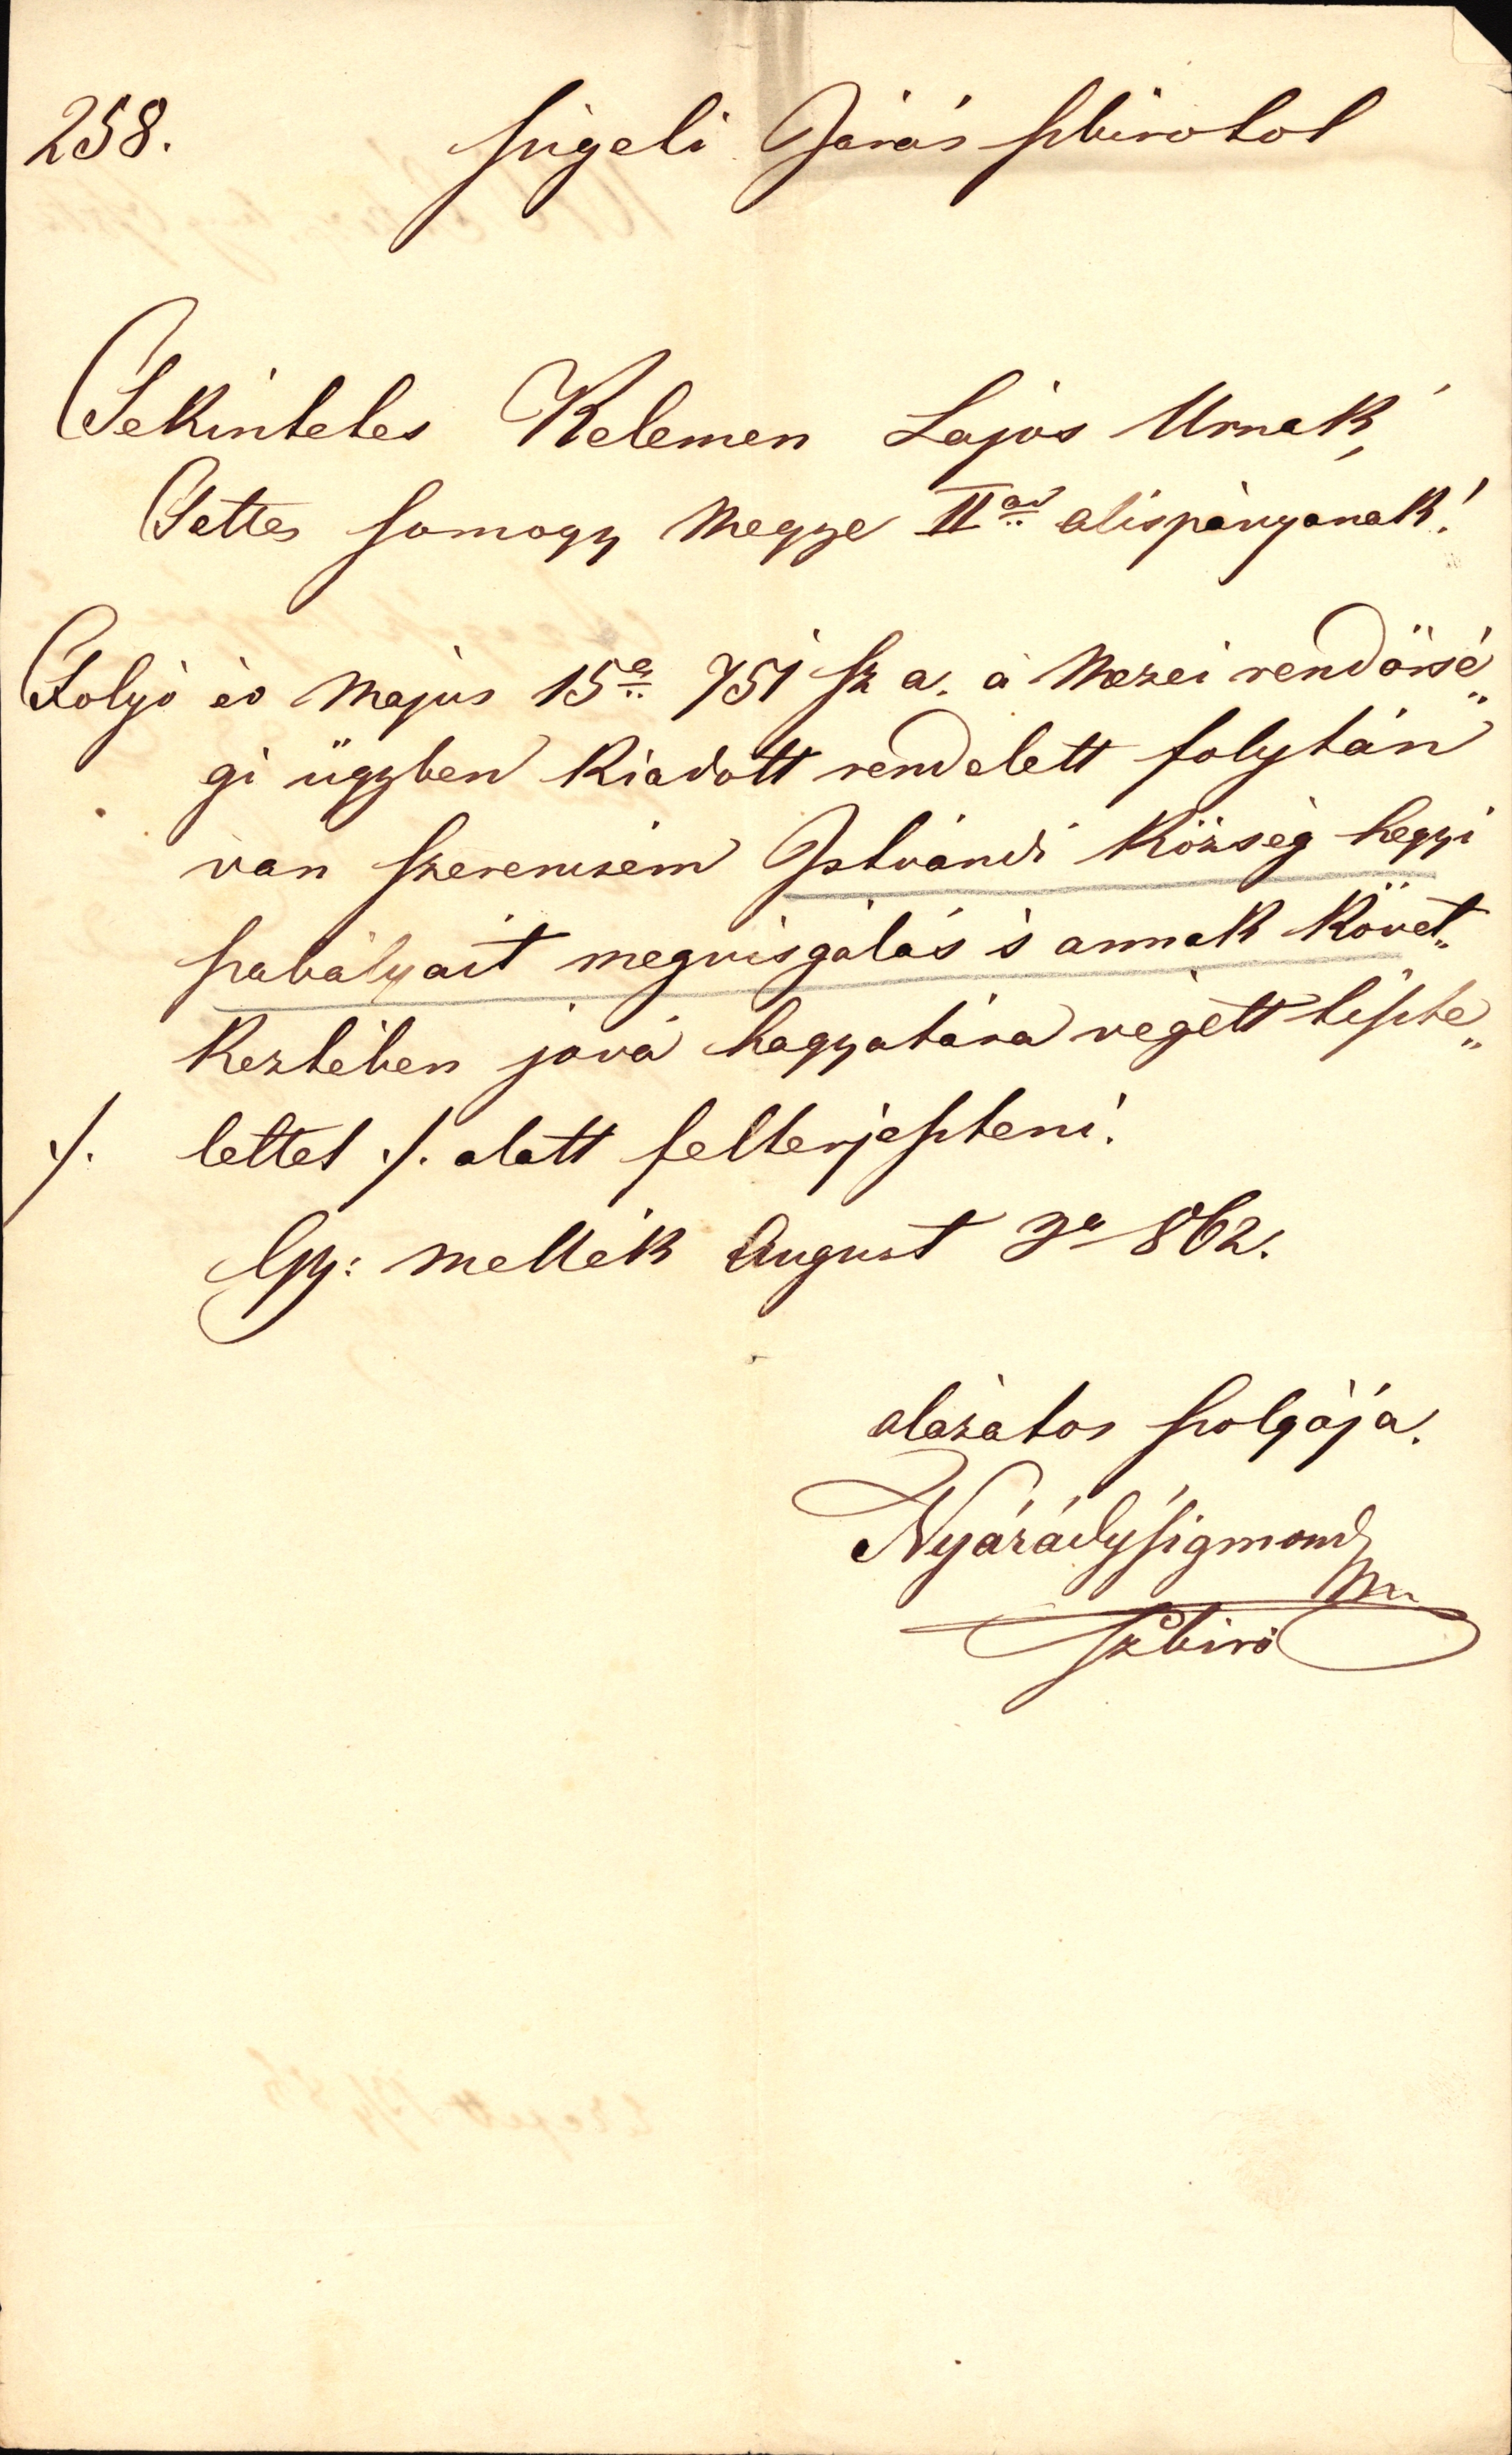 258. Szigeti Járás Szbirotol
Tekintetes Kelemen Lajos Urnak,
Tettes Somogy Megye II<sup>od</sup> alispányanak!
Folyó év Május 15<sup>a</sup> 751 sz a. a Mezei rendörsé„
gi ügyben kiadott rendelett folytán
van szerencsém Istvándi Község hegyi
szabályait megvisgálás s annak követ„
keztében jová hagyatása végett tiszte„
·/. lettel ·/. alatt felterjeszteni.
Gy: Mellék August 3<sup>a</sup> 862.
alázatos szolgája.
Nyárády Sigmond
Szbiró